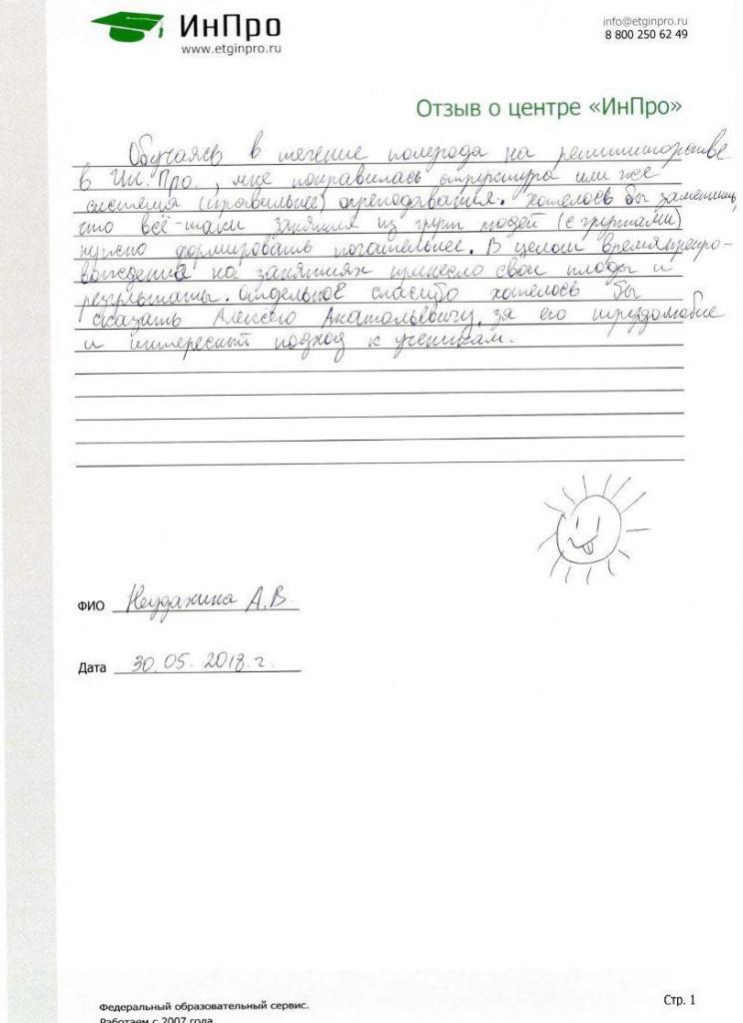 ИнПро
www.etginpro.ru
info@etginpro.ru
8 800 250 62 49
Отзыв о центре «ИнПро»
Обучаясь в течение полугода на репетиторстве
в Ин.Про., мне понравилась структура или же
система (правильнее) преподавания. Хотелось бы заметить,
что всё-таки занятия из групп людей (с группами)
нужно формировать тщательнее. В целом времяпрепро-
вождения на занятиях принесло свои плоды и
результаты. Отдельное спасибо хотелось бы
сказать Алексею Анатольевичу, за его трудолюбие
и интересный подход к ученикам.
ФИО Неудахина А.В
Дата 30.05.2018.г.
Федеральный образовательный сервис.
Работаем с 2007 года
Стр. 1